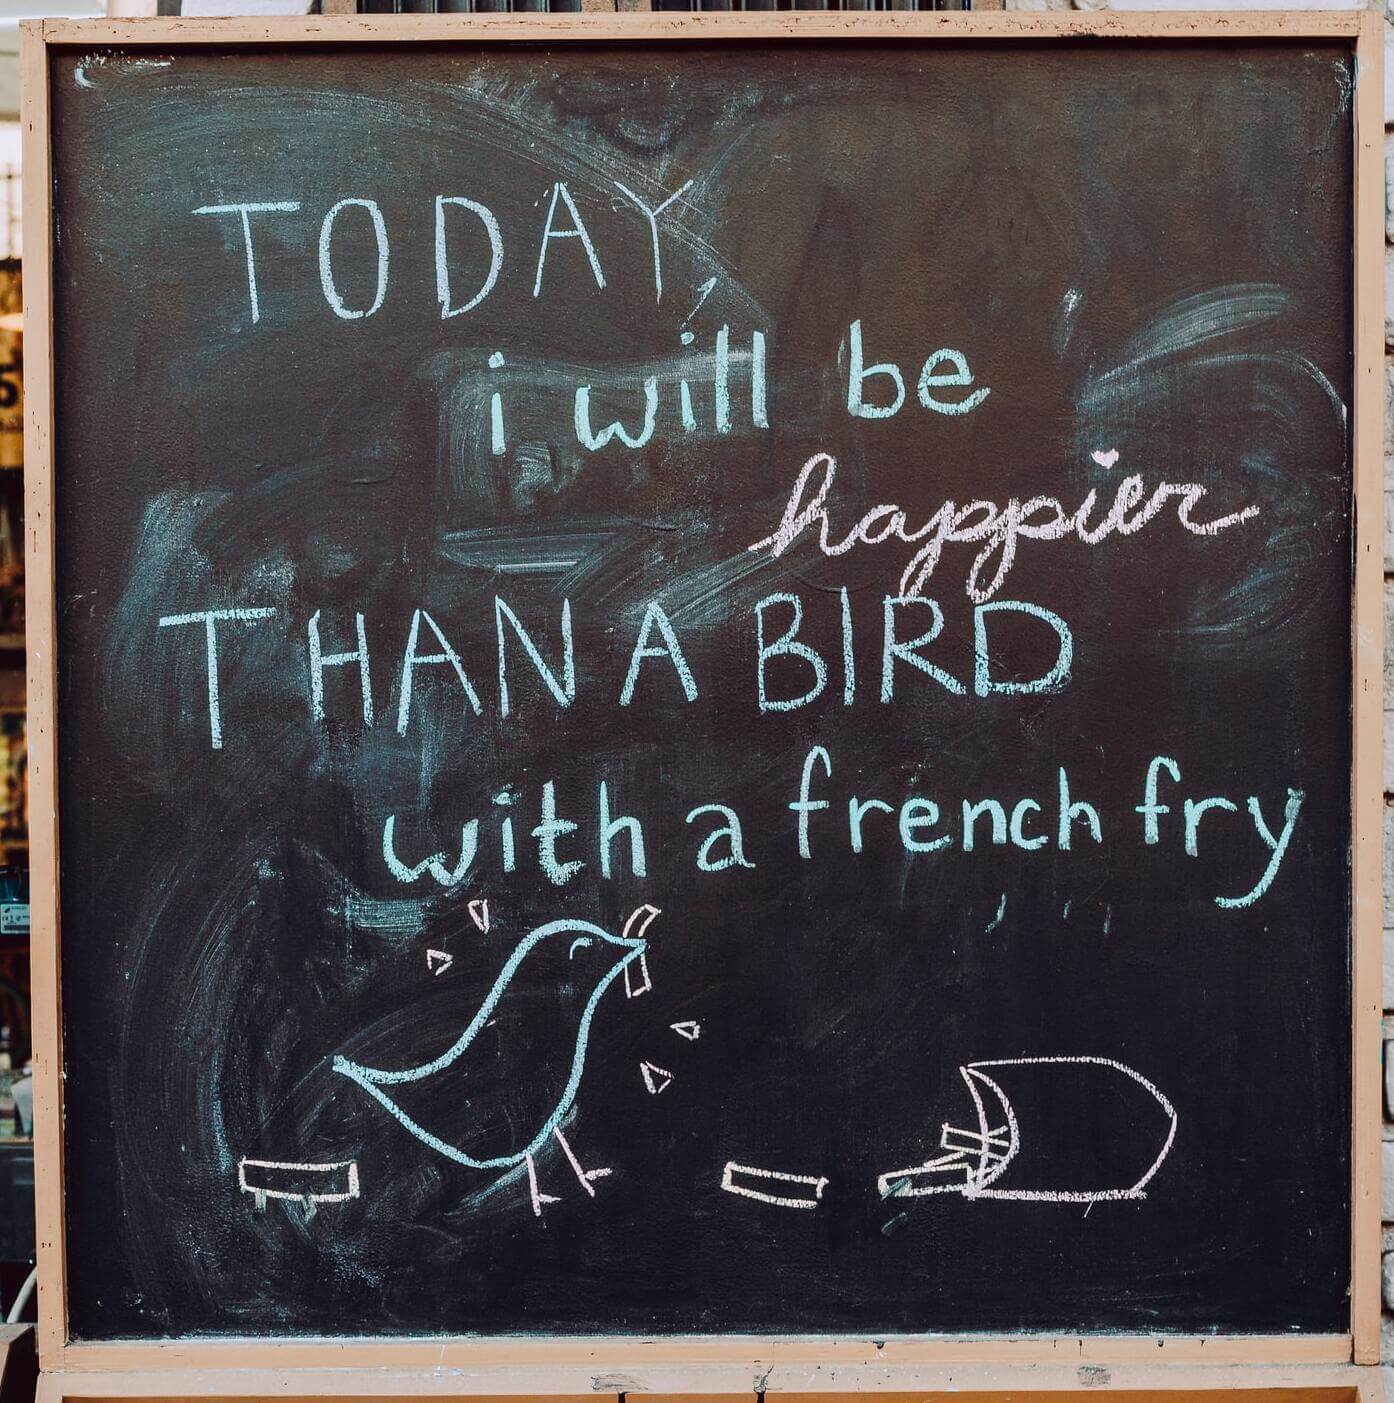 TODAY,
i will be
happier
THAN A BIRD
with a french fry